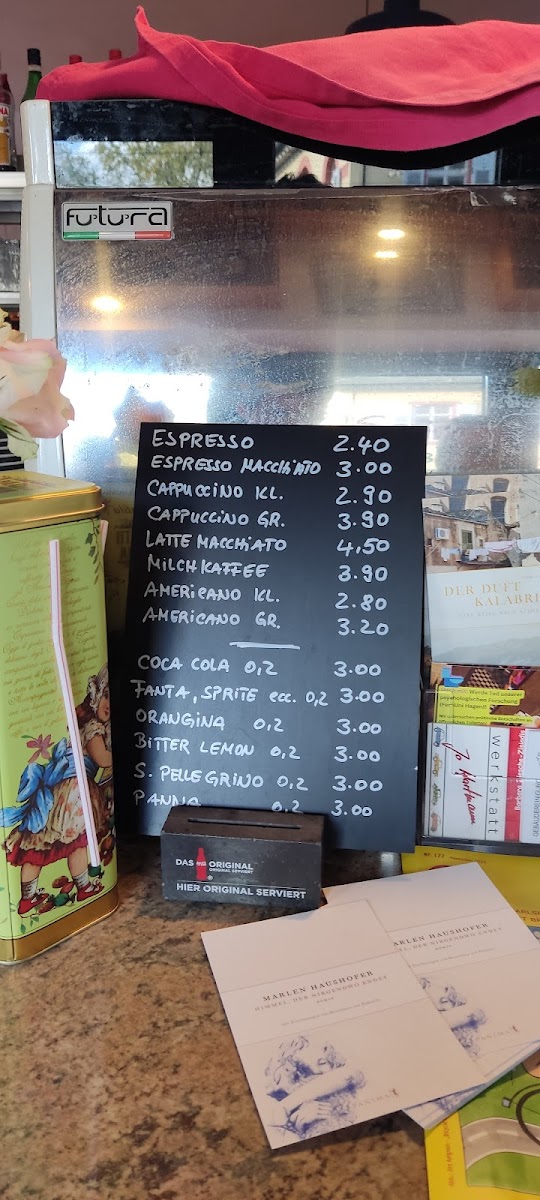 fu·tu·ra
ESPRESSO 2.40
ESPRESSO MACCHiATO 3.00
CAPPUCCiNO KL. 2.90
CAPPUCCiNO GR. 3.90
LATTE MACCHiATO 4,50
MiLCHKAFFEE 3.90
AMERiCANO KL. 2.80
AMERiCANO GR. 3.20
COCA COLA 0,2 3.00
FANTA, SPRiTE ecc. 0,2 3.00
ORANGiNA 0,2 3.00
BiTTER LEMON 0,2 3.00
S. PELLEGRiNO 0,2 3.00
PANNA 0,2 3.00
DAS ORIGINAL
ORIGINAL SERVIERT
HIER ORIGINAL SERVIERT
DER DUFT
KALABRI
werkstatt
MARLEN HAUSHOFER
HIMMEL, DER NIRGENDWO ENDET
ROMAN
ARLEN HAUSHOFER
EL, DER NIRGENDWO ENDET
Nr. 177